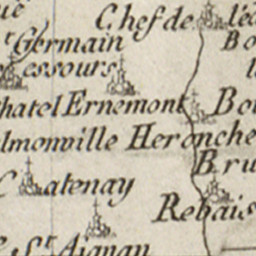 Chef de l'é
r Germain
essours
hatel Ernemont Bo
lmonville Heronche
Bru
Chatenay
Rebais
St Aignan